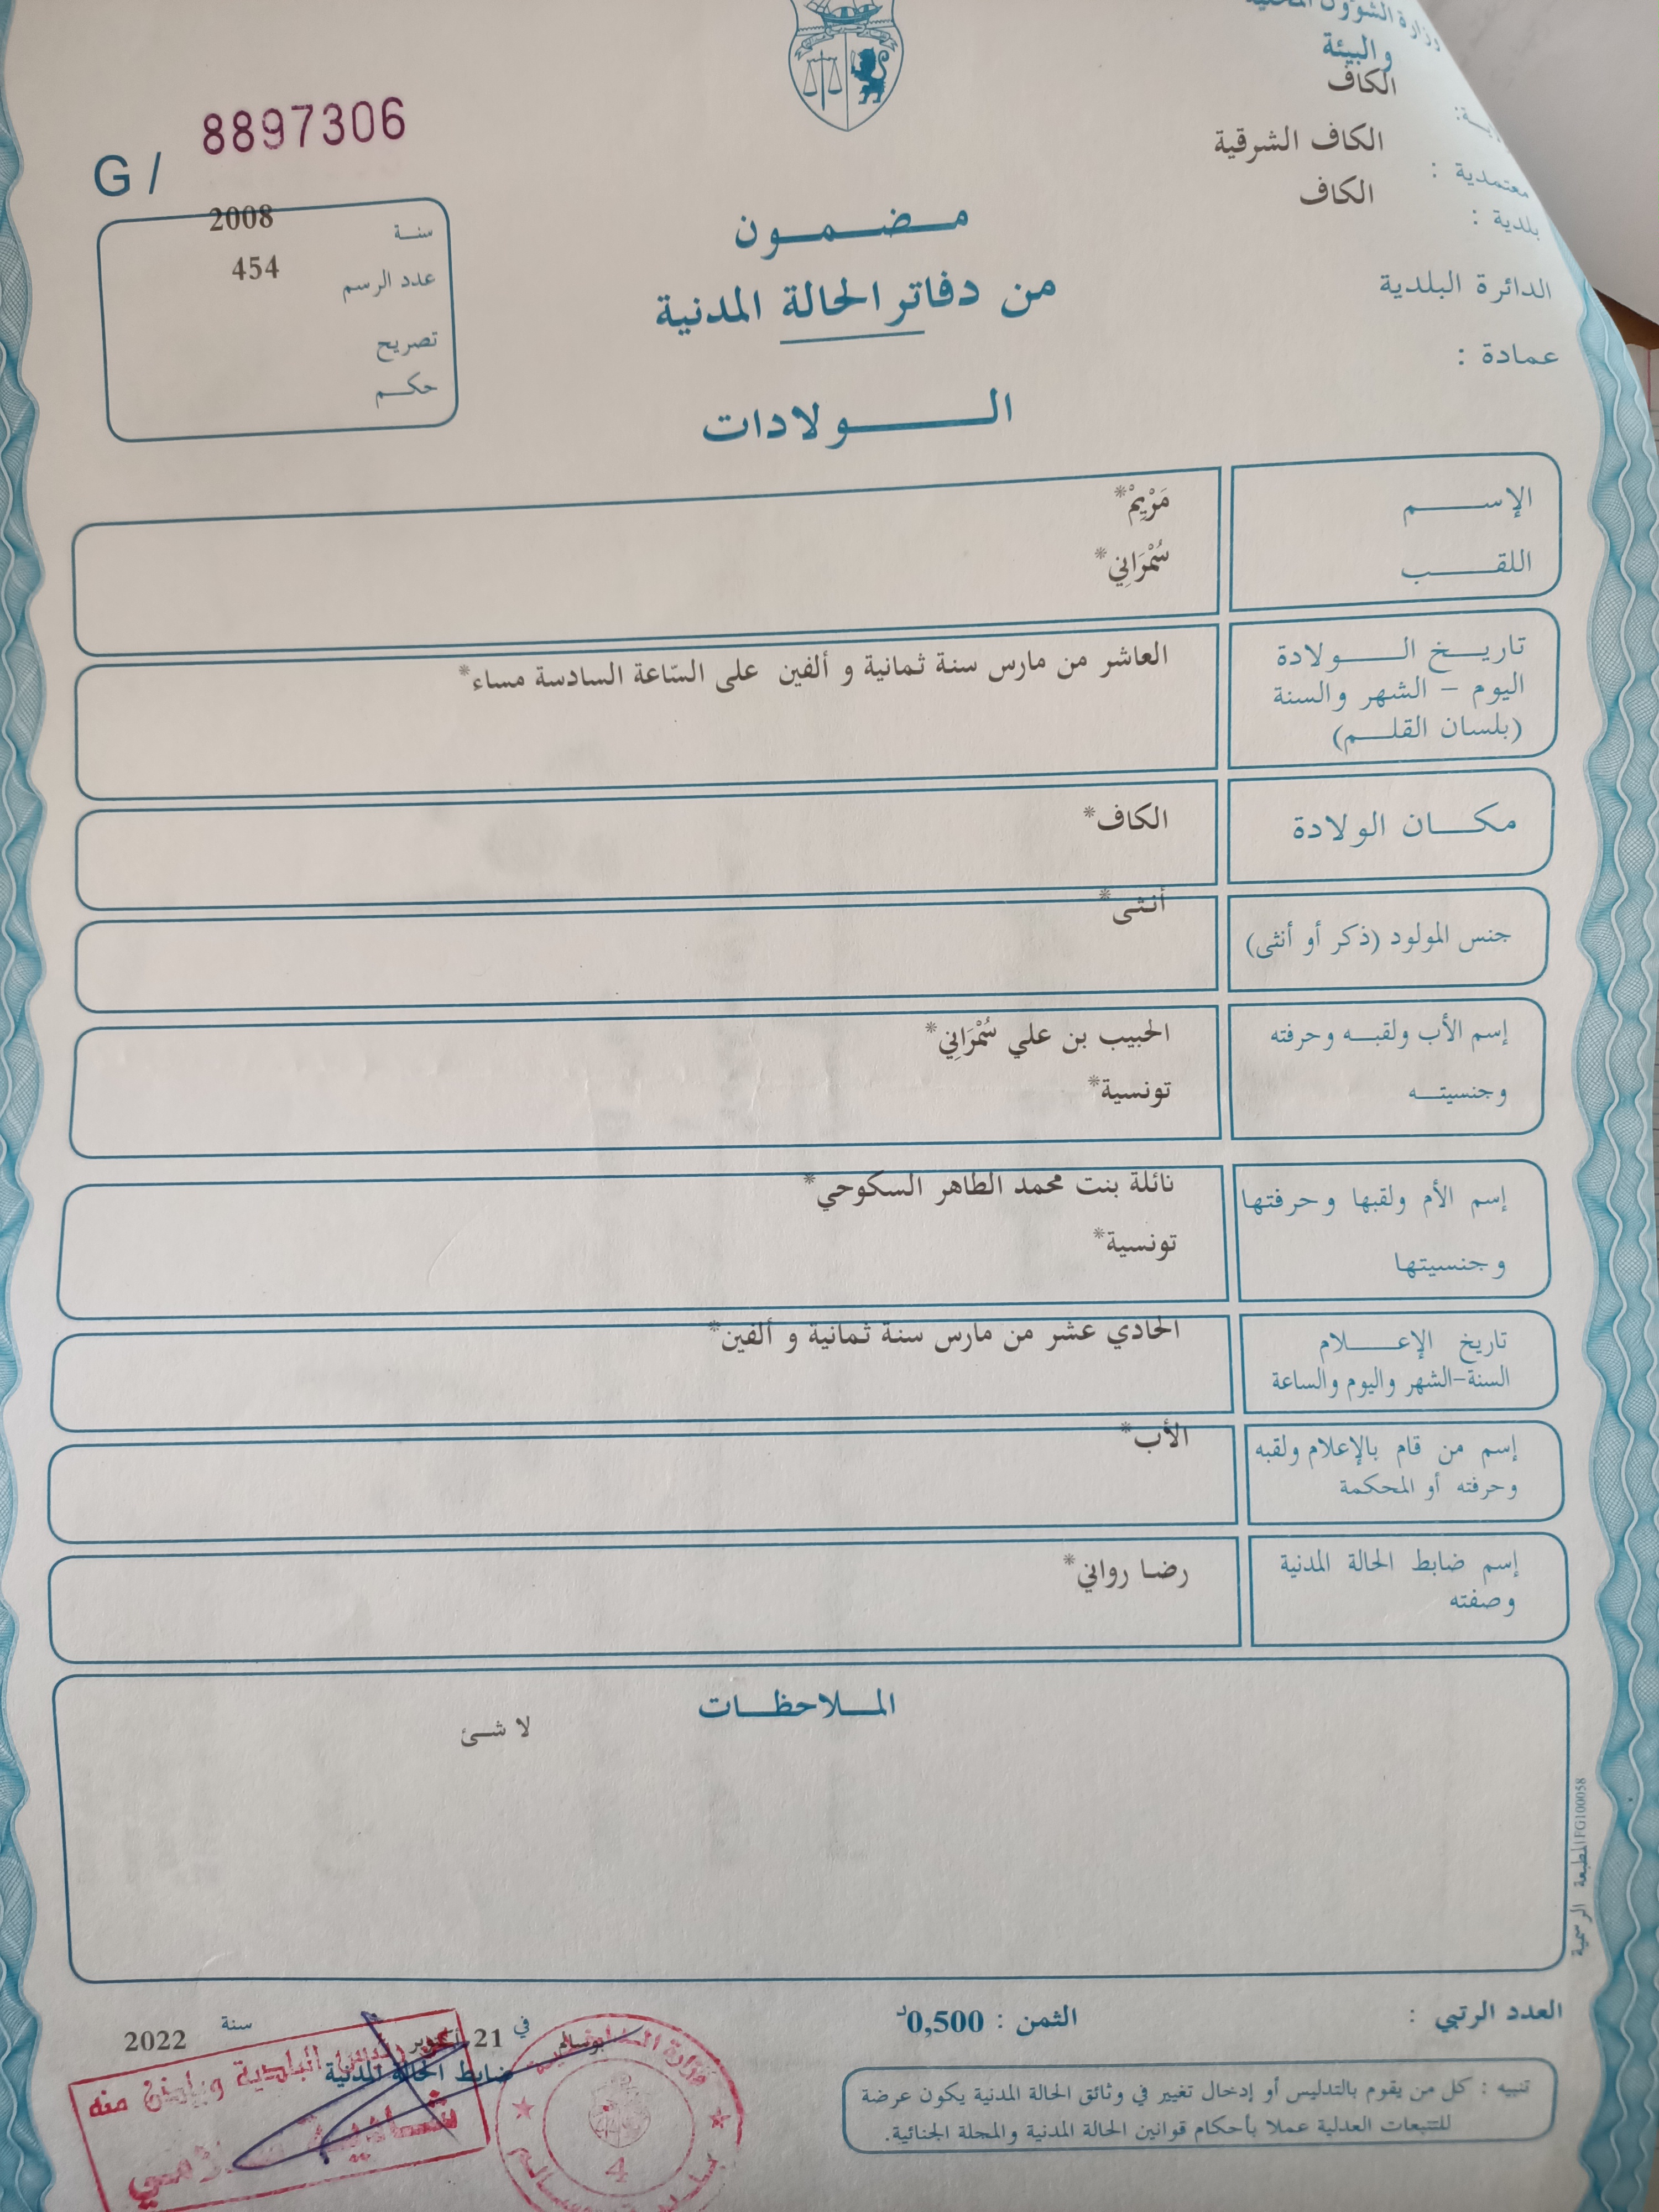 وزارة الشؤون المحلية
والبيئة
الكاف
الكاف الشرقية
معتمدية :
الكاف
بلدية :
الدائرة البلدية
عمادة :
G / 8897306
سنة 2008
عدد الرسم 454
تصريح
حكم
مضمون
من دفاتر الحالة المدنية
الولادات
الإسم
مَرْيِمْ*
اللقب
سُمْرَانِي*
تاريخ الولادة
اليوم - الشهر والسنة
(بلسان القلم)
العاشر من مارس سنة ثمانية و ألفين على السّاعة السادسة مساء*
مكان الولادة
الكاف*
جنس المولود (ذكر أو أنثى)
أنثى*
إسم الأب ولقبه وحرفته
وجنسيته
الحبيب بن علي سُمْرَانِي*
تونسية*
إسم الأم ولقبها وحرفتها
وجنسيتها
نائلة بنت محمد الطاهر السكوحي*
تونسية*
تاريخ الإعلام
السنة-الشهر واليوم والساعة
الحادي عشر من مارس سنة ثمانية و ألفين*
إسم من قام بالإعلام ولقبه
وحرفته أو المحكمة
الأب*
إسم ضابط الحالة المدنية
وصفته
رضا رواني*
الملاحظات
لا شئ
المطبعة الرسمية FG100058
العدد الرتبي :
الثمن : 0,500د
بوسالم في 21 أكتوبر سنة 2022
ضابط الحالة المدنية
عن رئيس البلدية وبإذن منه
وزارة الداخلية
4
تنبيه : كل من يقوم بالتدليس أو إدخال تغيير في وثائق الحالة المدنية يكون عرضة
للتتبعات العدلية عملا بأحكام قوانين الحالة المدنية والمجلة الجنائية.